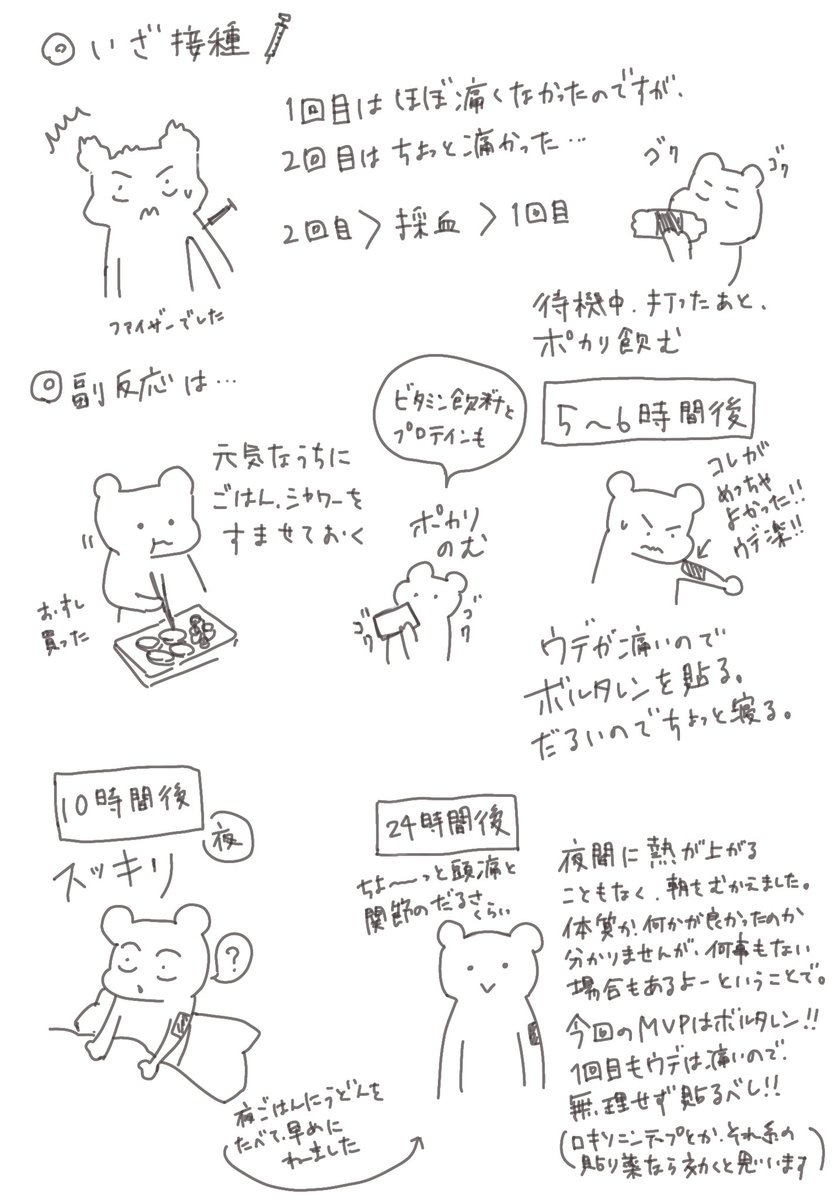 ◎いざ接種
1回目はほぼ痛くなかったのですが、
2回目はちょっと痛かった…
2回目>採血>1回目
ファイザーでした
ゴク
ゴク
待機中、打ったあと、
ポカリ飲む
◎副反応は…
元気なうちに
ごはん、シャワーを
すませておく
おすし
買った
ビタミン飲料と
プロテインも
ポカリ
のむ
ゴク
ゴク
5〜6時間後
コレが
めっちゃ
よかった!!
ウデ楽!!
ウデが痛いので
ボルタレンを貼る。
だるいのでちょっと寝る。
10時間後
夜
スッキリ
?
夜ごはんにうどんを
たべて、早めに
ねーました
24時間後
ちょ〜〜っと頭痛と
関節のだるさ
くらい
夜間に熱が上がる
こともなく、朝をむかえました。
体質か、何かが良かったのか
分かりませんが、何事もない
場合もあるよーということで。
今回のMVPはボルタレン!!
1回目もウデは痛いので、
無理せず貼るべし!!
(ロキソニンテープとか、それ系の
貼り薬なら効くと思います)